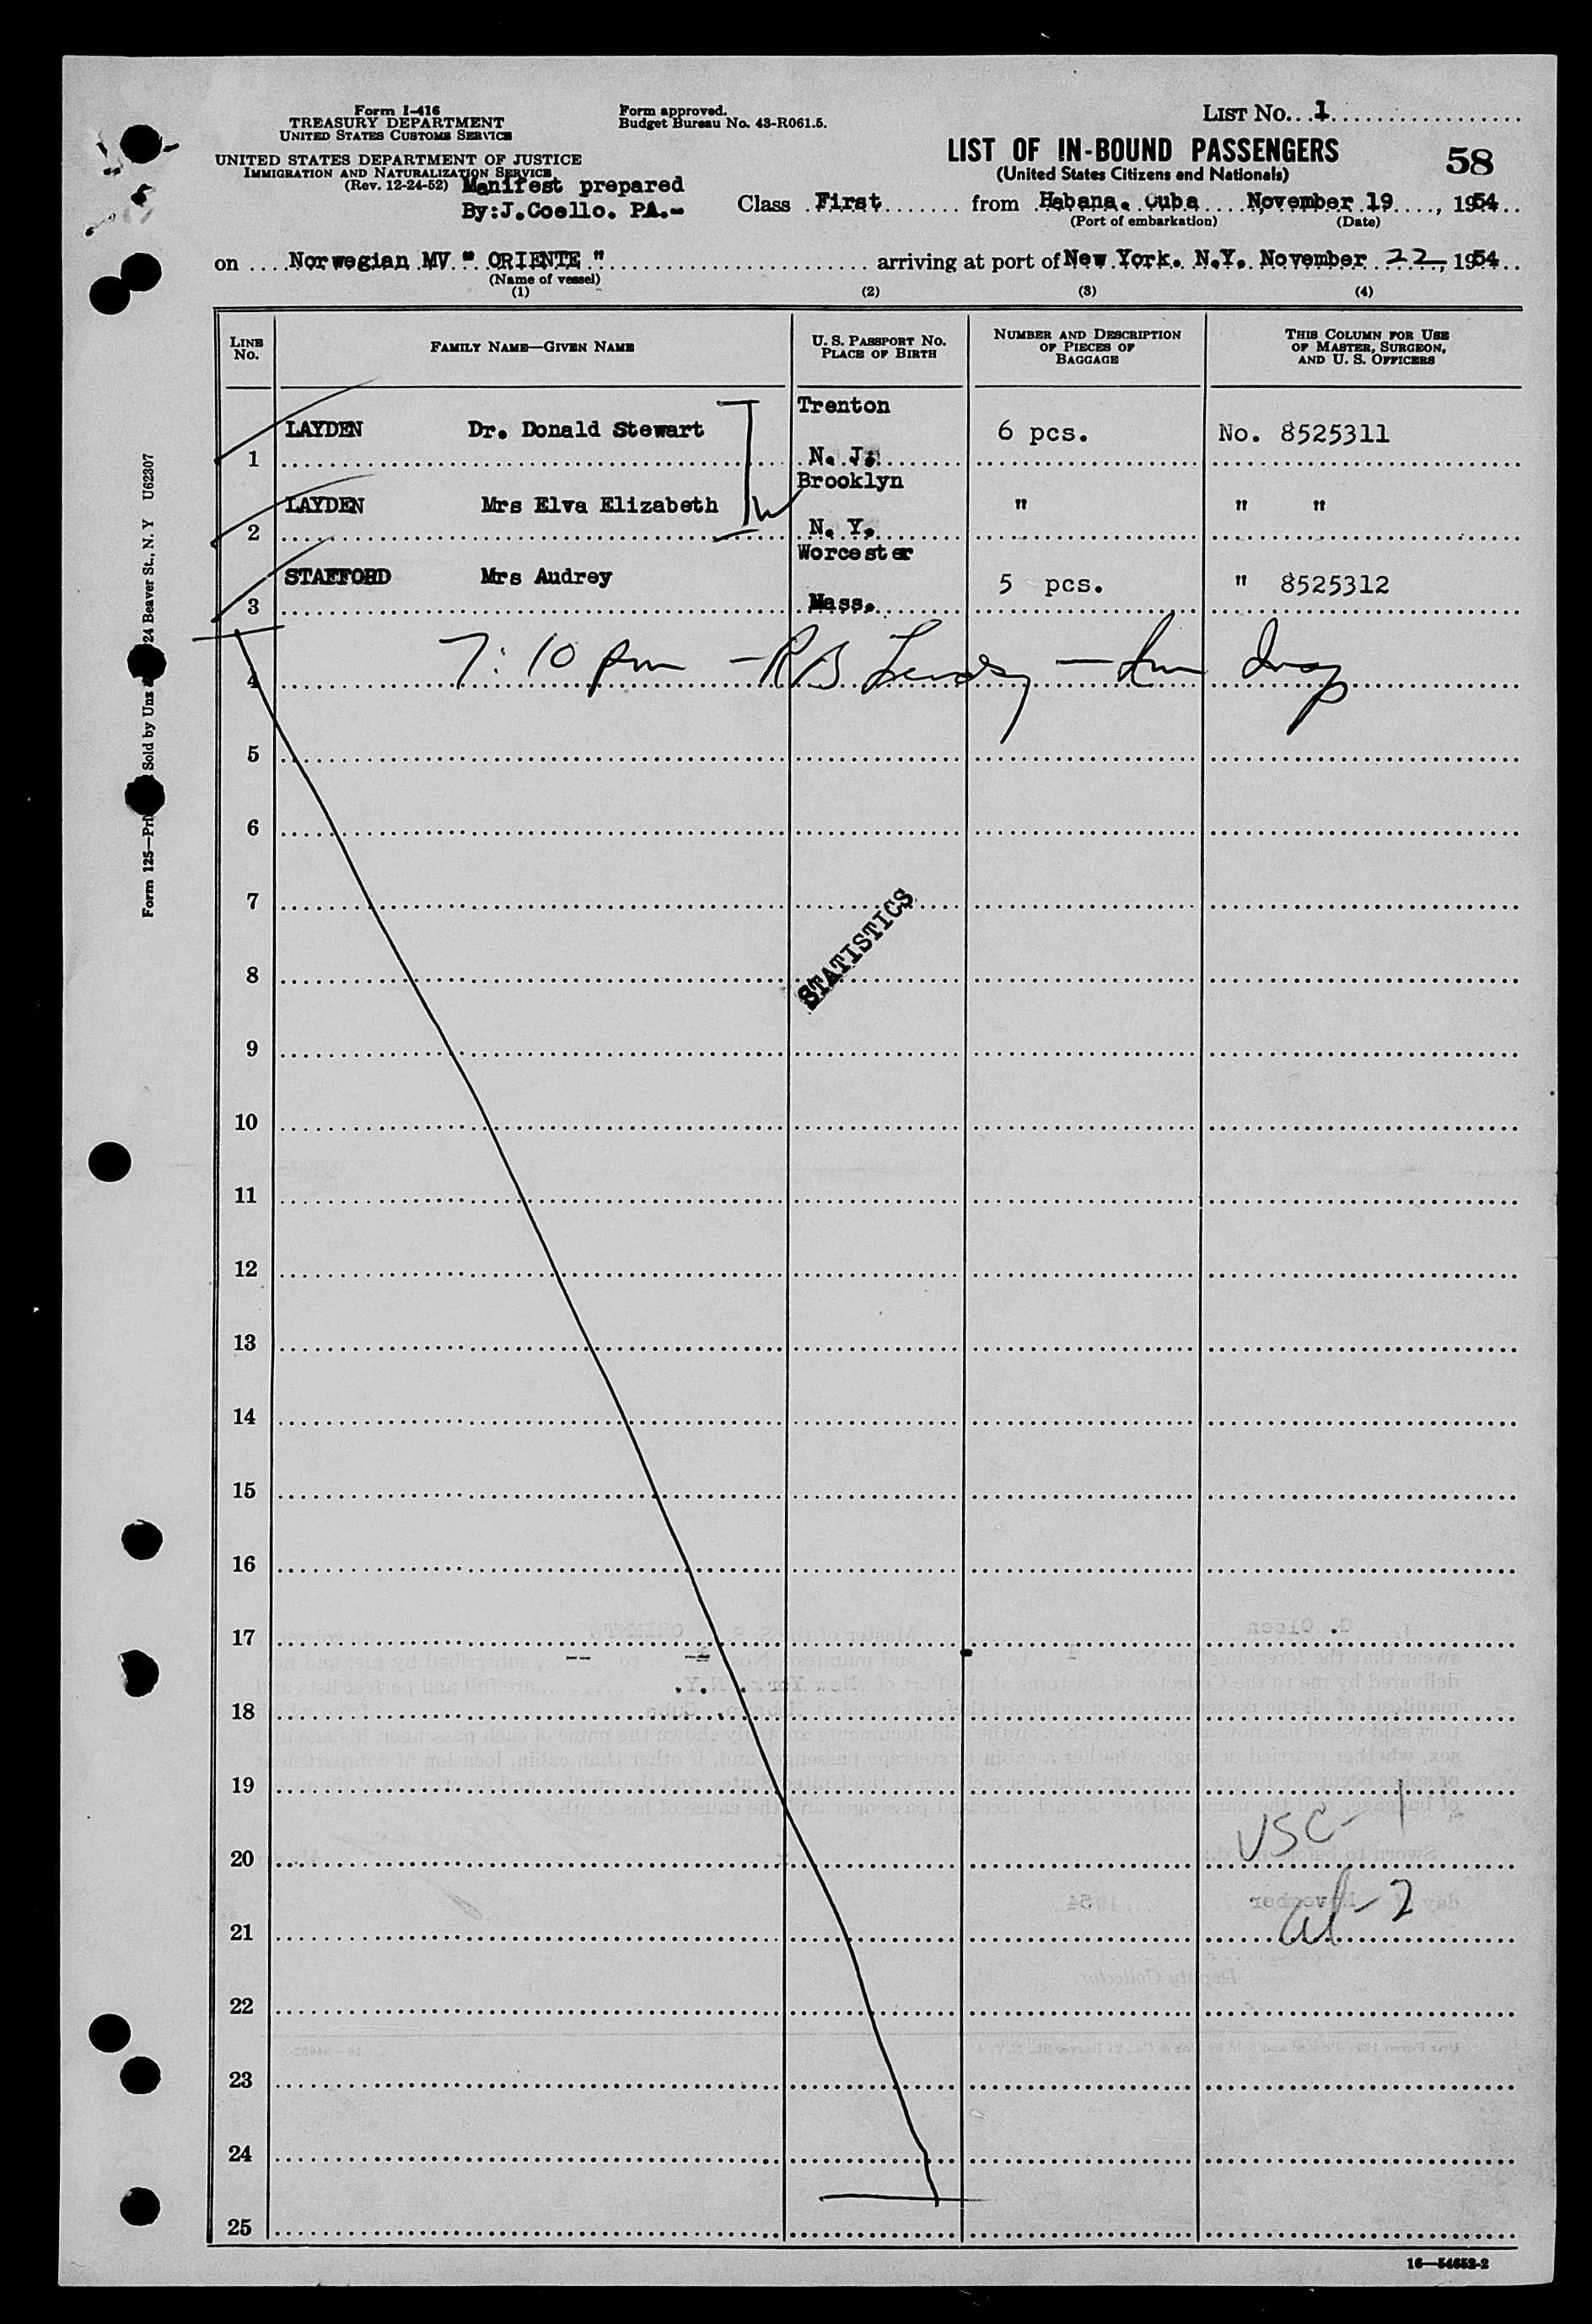 Form I-416
TREASURY DEPARTMENT
UNITED STATES CUSTOMS SERVICE
UNITED STATES DEPARTMENT OF JUSTICE
IMMIGRATION AND NATURALIZATION SERVICE
(Rev. 12-24-52) Manifest prepared
By:J.Coello. PA.-
Form approved.
Budget Bureau No. 43-R061.5.
LIST No. 1
LIST OF IN-BOUND PASSENGERS
(United States Citizens and Nationals)
58
Class First from Habana. Cuba November 19, 1954
(Port of embarkation) (Date)
on Norwegian MV " ORIENTE " arriving at port of New York. N.Y. November 22, 1954
(Name of vessel)
(1) (2) (3) (4)
LINE No. FAMILY NAME—GIVEN NAME U. S. PASSPORT No. PLACE OF BIRTH NUMBER AND DESCRIPTION OF PIECES OF BAGGAGE THIS COLUMN FOR USE OF MASTER, SURGEON, AND U. S. OFFICERS
Trenton
LAYDEN Dr. Donald Stewart 6 pcs. No. 8525311
1 N. J.
Brooklyn
LAYDEN Mrs Elva Elizabeth " " "
2 N. Y.
Worcester
STAFFORD Mrs Audrey 5 pcs. " 8525312
3 Mass.
7:10 pm - RB - Imm Insp
4
5
6
7
STATISTICS
8
9
10
11
12
13
14
15
16
17
18
19
USC- 1
20
al- 2
21
22
23
24
25
16—54652-2
Form 125—Pri Sold by Unz 24 Beaver St., N. Y U62307